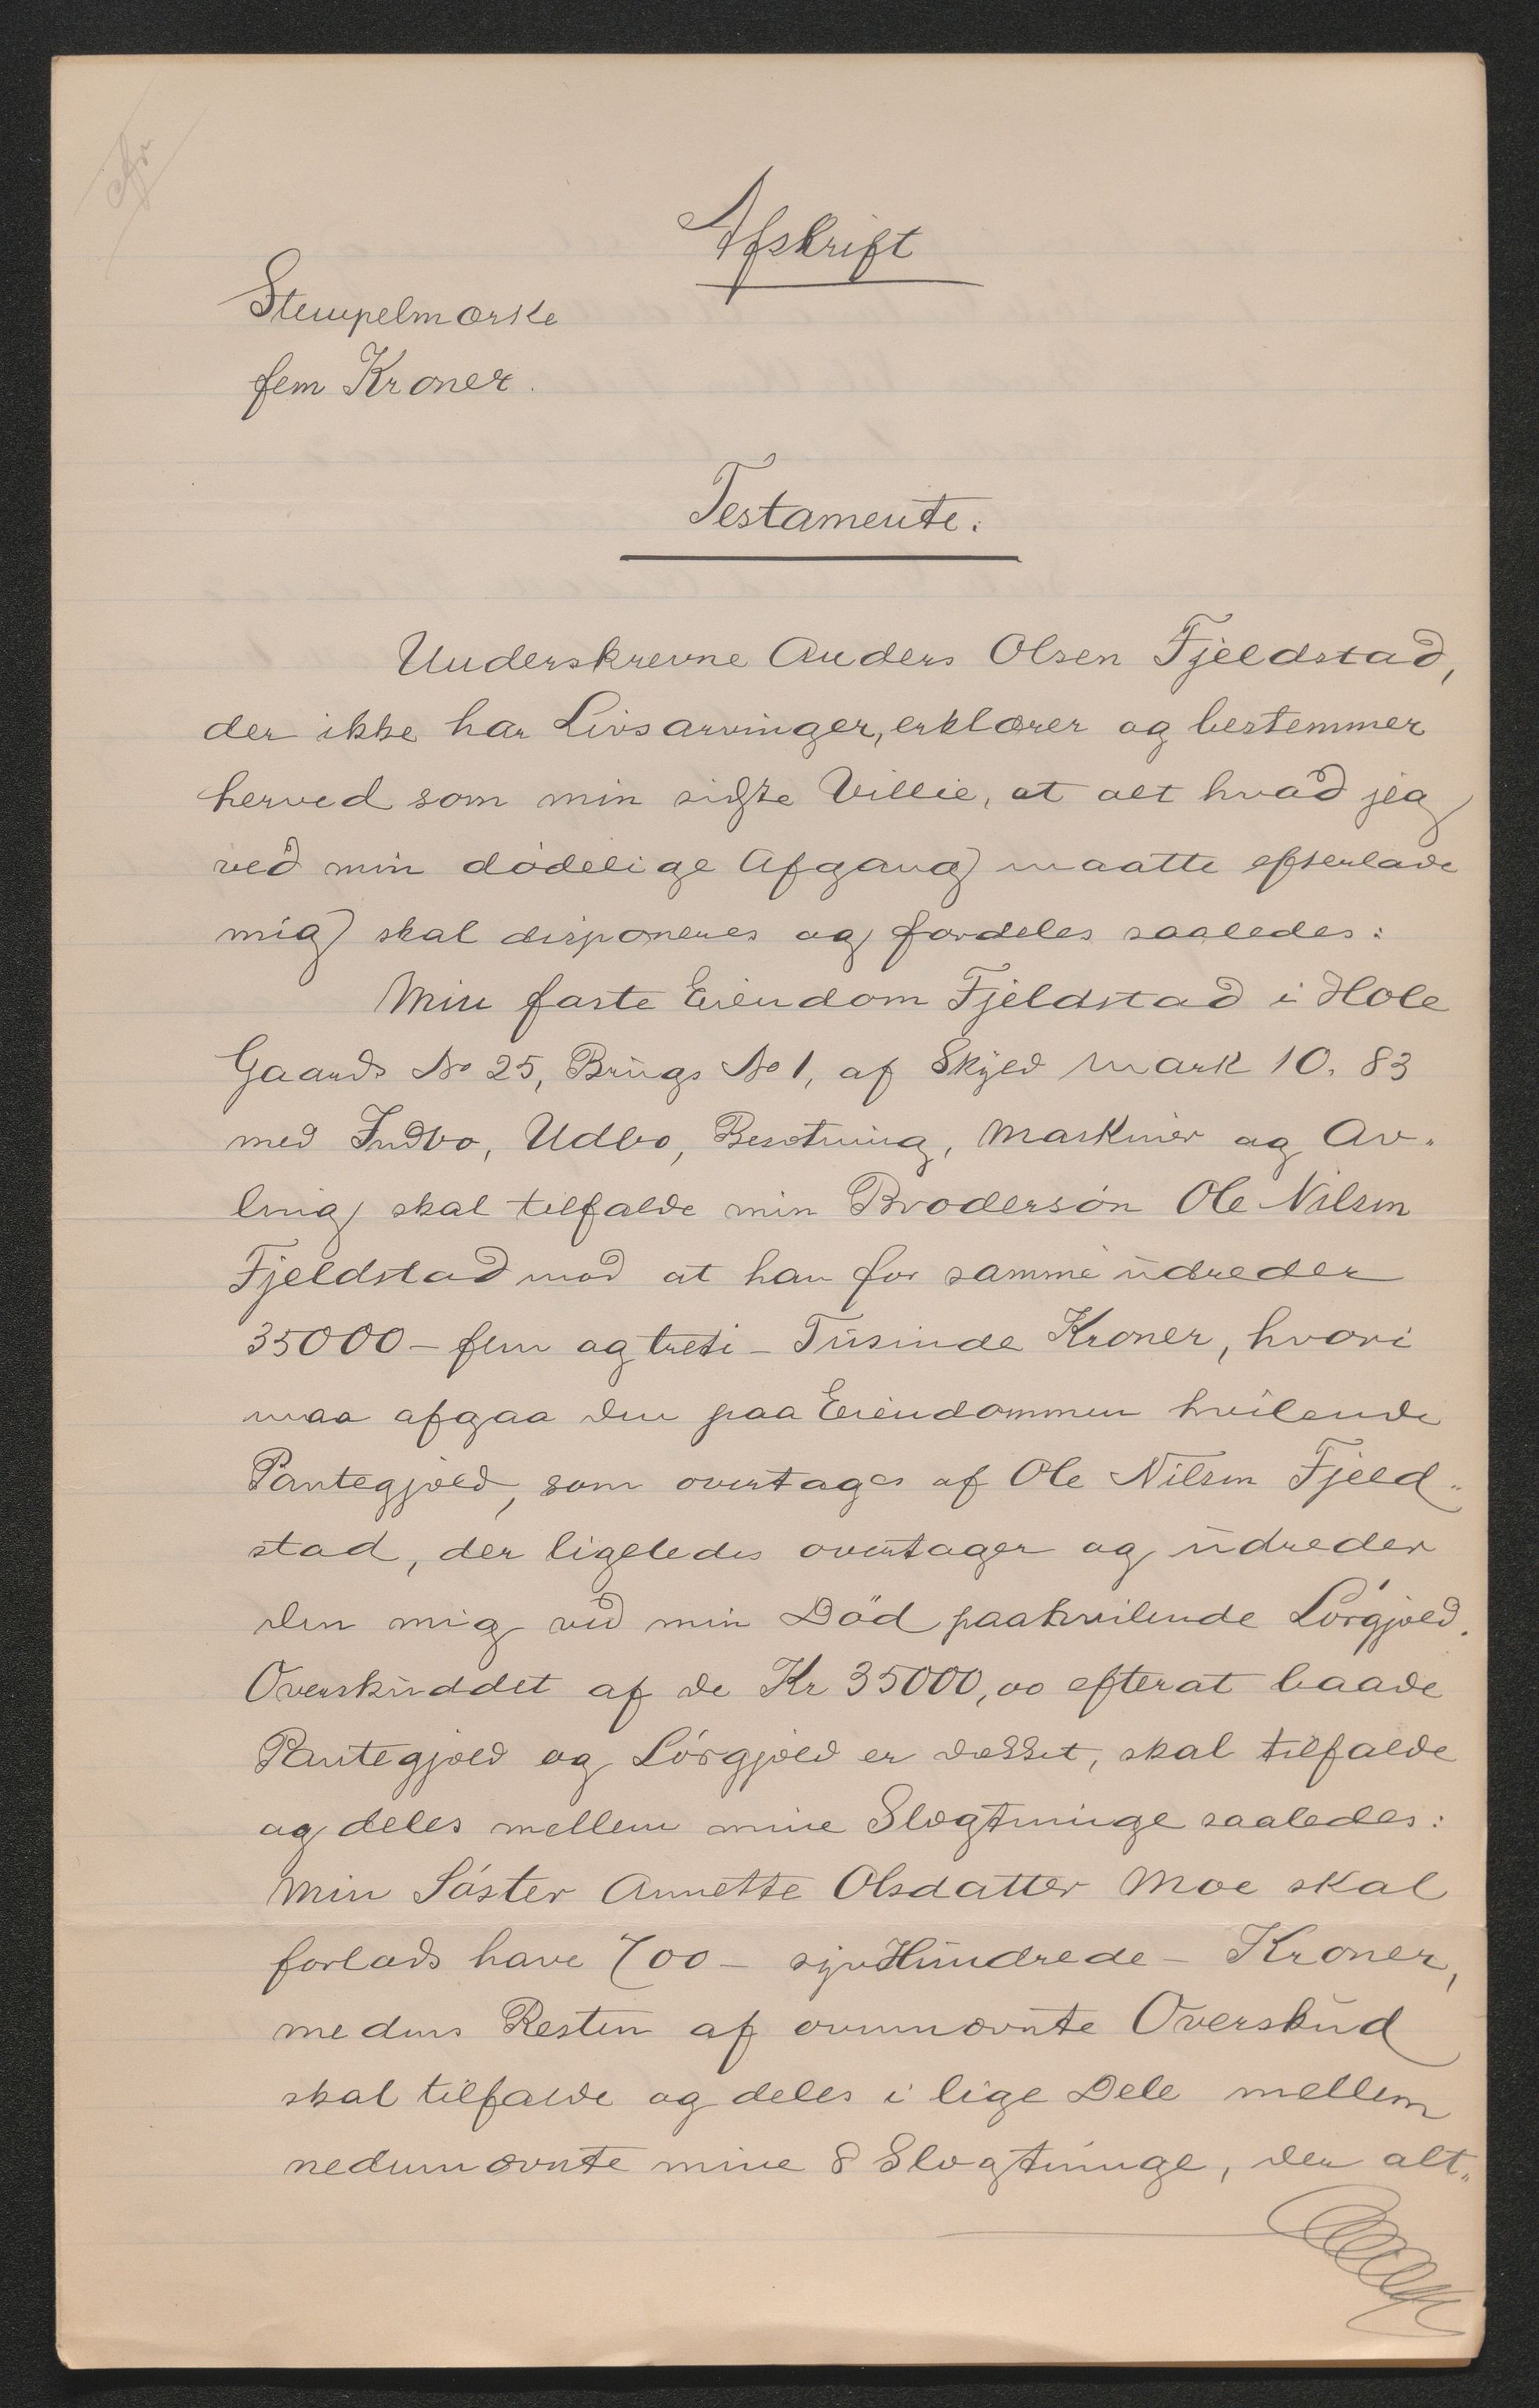 Afskrift
Stempelmærke
fem Kroner.
Testamente.
Underskrevne Anders Olsen Fjeldstad,
der ikke har Livsarvinger, erklærer og bestemmer
herved som min sidste Villie, at alt hvad jeg
ved min dødelige Afgang maatte efterlade
mig skal disponeres og fordeles saaledes:
Min faste Eiendom Fjeldstad i Hole
Gaards No 25, Brugs No 1, af Skyld Mark 10.83
med Indbo, Udbo, Besætning, Maskiner og Av-
ling skal tilfalde min Brodersøn Ole Nilsen
Fjeldstad mod at han for samme udreder
35000 – fem og treti – Tusinde Kroner, hvori
maa afgaa den paa Eiendommen hvilende
Pantegjæld, som overtages af Ole Nilsen Fjeld-
stad, der ligeledes overtager og udreder
den mig ved min Död paahvilende Lösgjæld.
Overskuddet af de Kr 35000,00 efterat baade
Pantegjæld og Lösgjæld er dækket, skal tilfalde
og deles mellem mine Slægtninge saaledes:
Min Söster Annette Olsdatter Moe skal
forlods have 700 – syv Hundrede – Kroner,
medens Resten af ovennævnte Overskud
skal tilfalde og deles i lige Dele mellem
nedennævnte mine 8 Slægtninge, der alt-